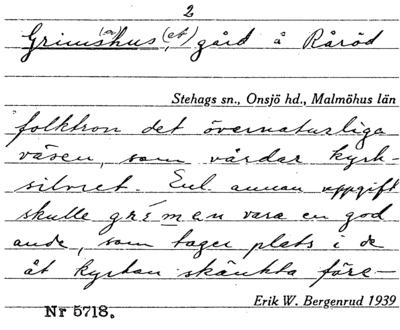 2
Grims(a)hus (et) gård å Råröd
Stehags sn., Onsjö hd., Malmöhus län
folktron det övernaturliga
väsen, som vårdar kyrk-
silvret. Enl. annan uppgift
skulle gréman vara en god
ande, som tager plats i de
åt kyrkan skänkta före-
Erik W. Bergenrud 1939
Nr 5718.